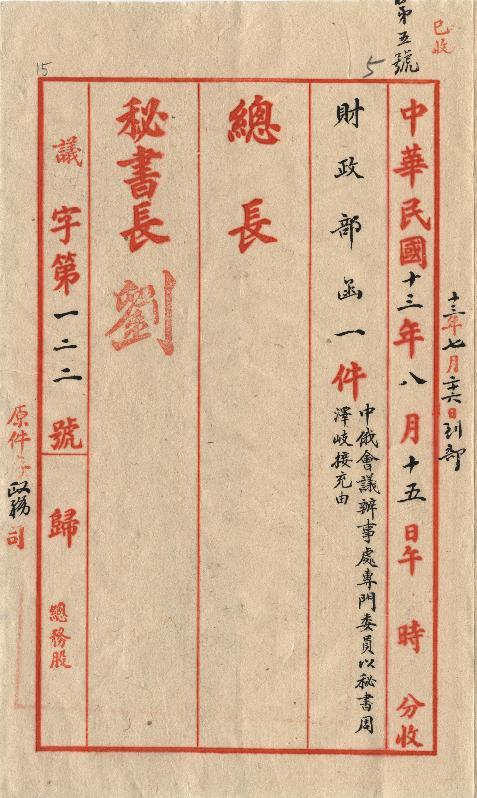 已收
第五號
5
15
十三年七月二十六日到部
中華民國十三年八月十五日午 時 分收
財政部函一件
中俄會議辦事處專門委員以秘書周
澤岐接充由
總長
秘書長 劉
議字第一二二號 歸 總務股
原件 政務司